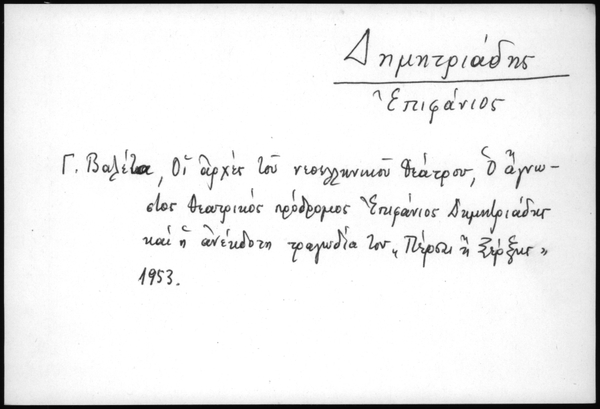 Δημητριάδης
Ἐπιφάνιος
Γ. Βαλέτα, Οἱ ἀρχὲς τοῦ νεοελληνικοῦ θεάτρου, Ὁ ἄγνω-
στος θεατρικὸς πρόδρομος Ἐπιφάνιος Δημητριάδης
καὶ ἡ ἀνέκδοτη τραγωδία του „Πέρσαι ἢ Ξέρξης”
1953.